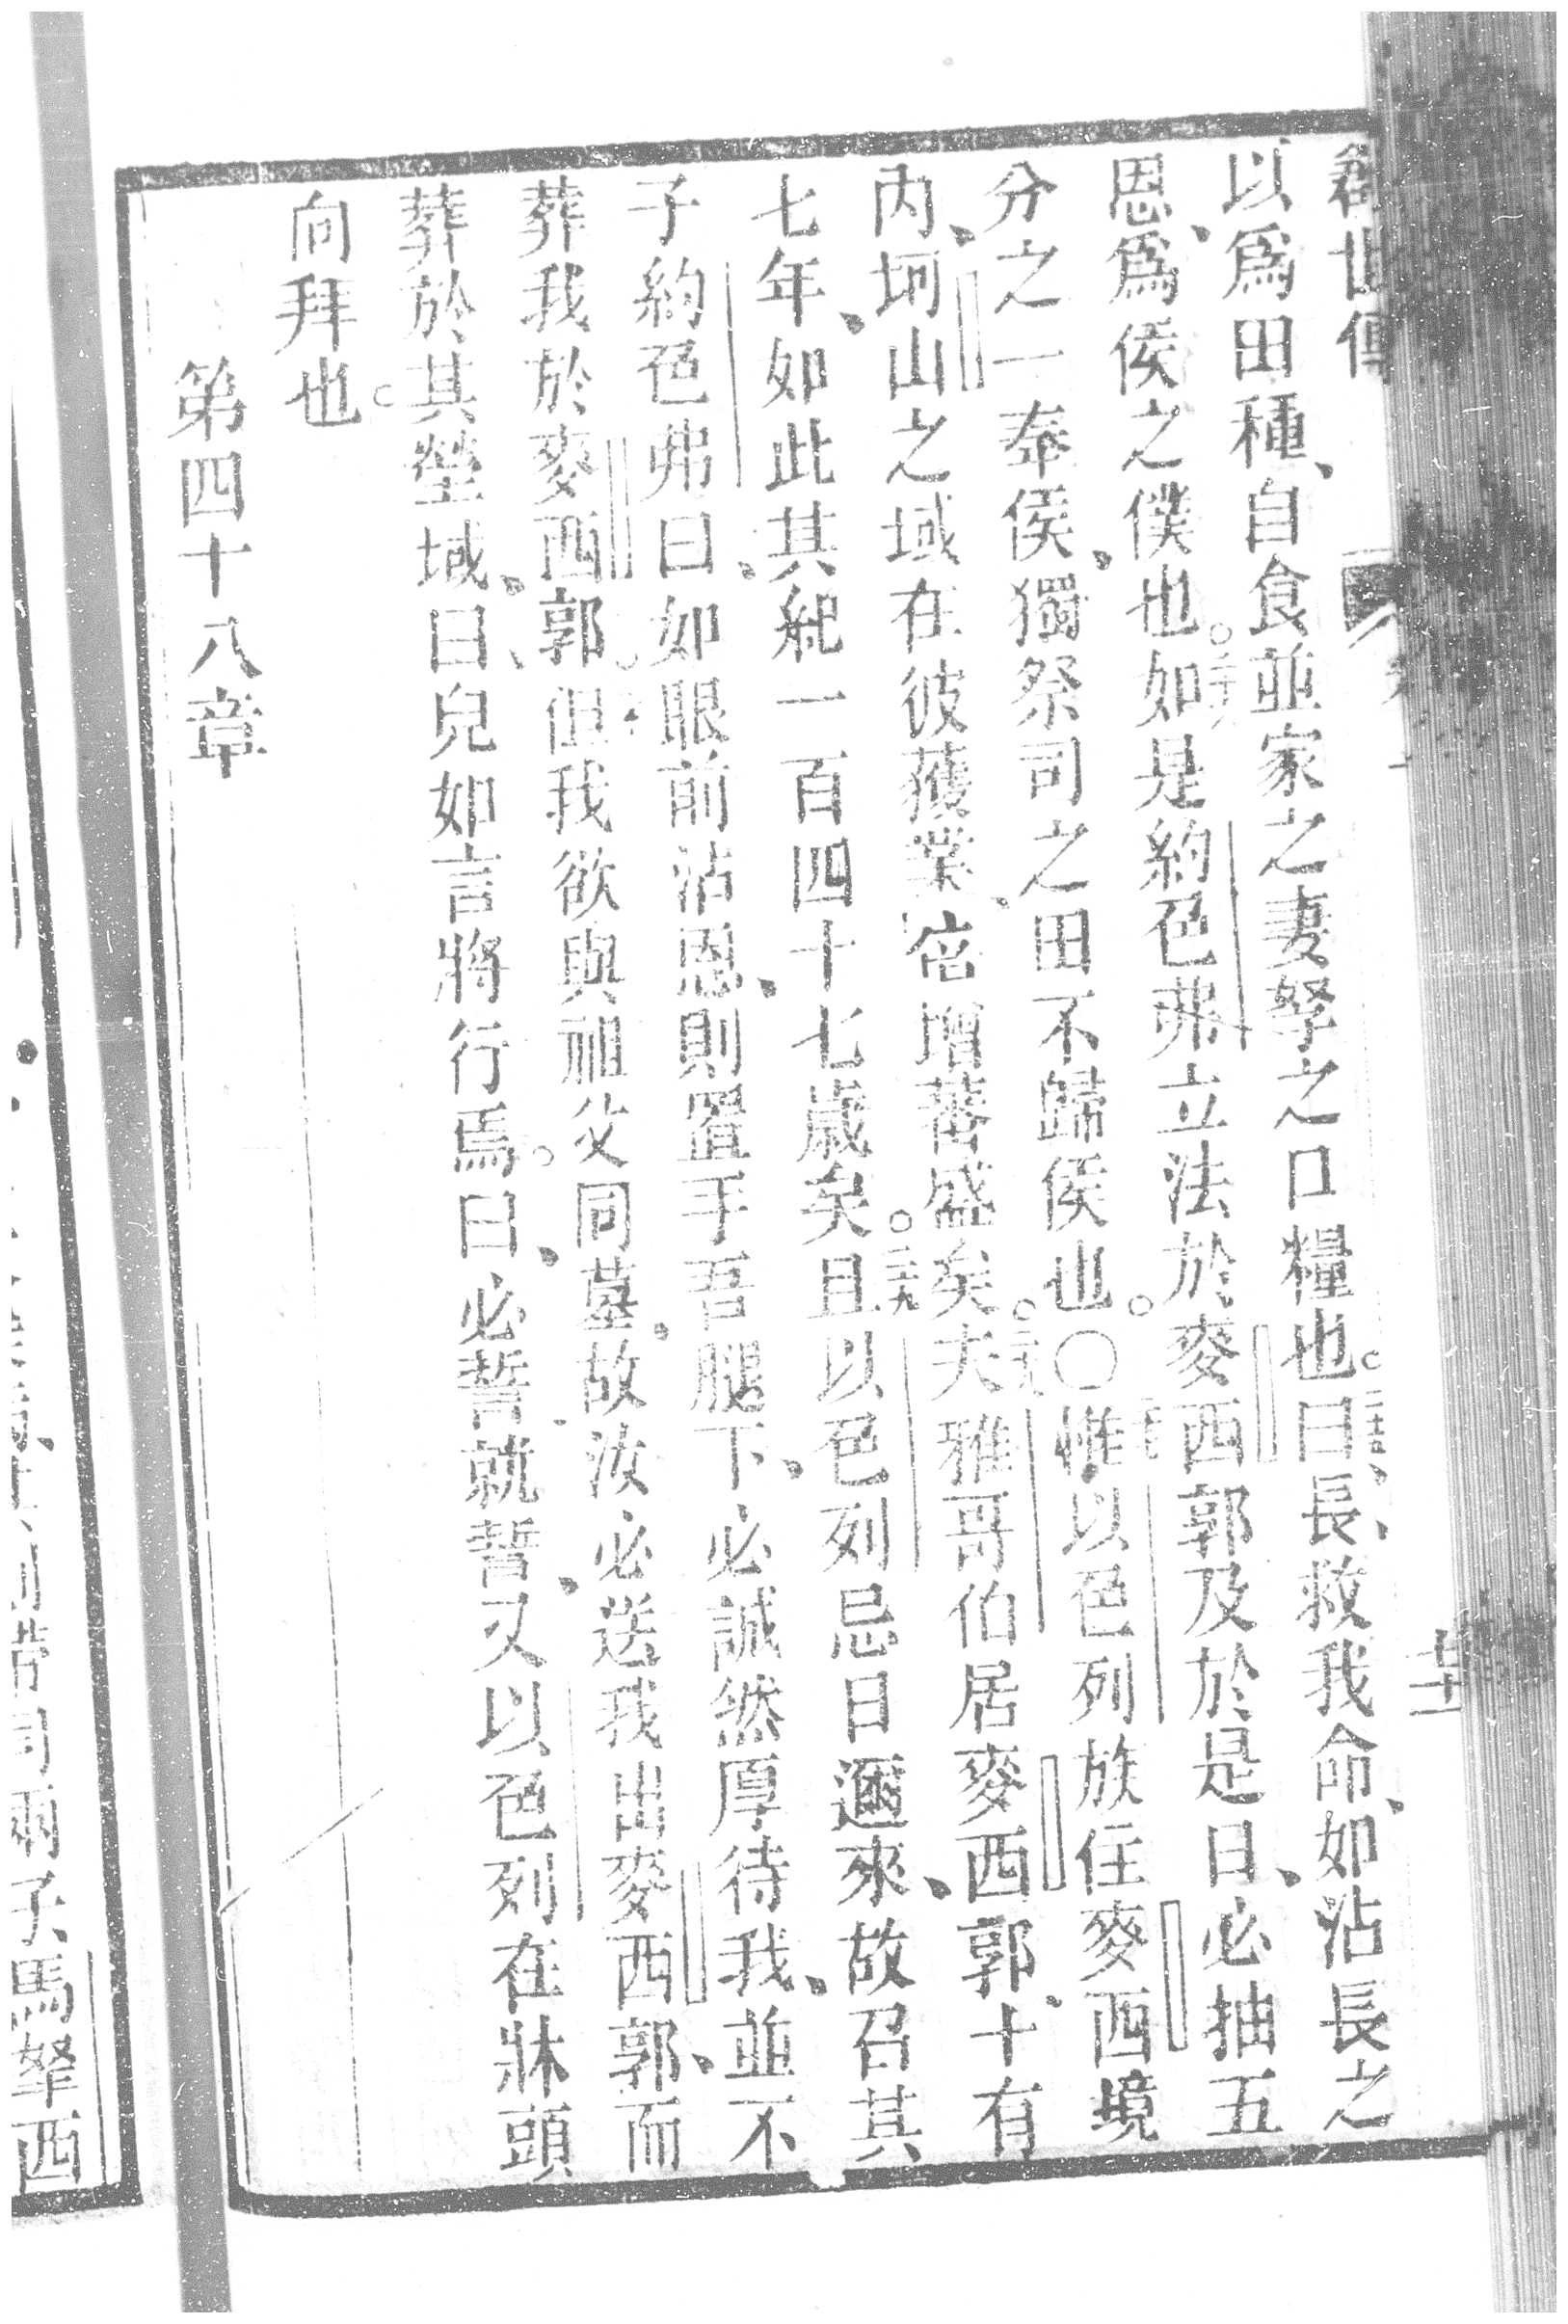 以爲田種、自食並家之妻孥之口糧也。曰、長救我命、如沾長之
恩、爲侯之僕也。如是約色弗立法於麥西郭及於是日、必抽五
分之一奉侯、獨祭司之田不歸侯也。○惟以色列族住麥西境
內、坷山之域在彼獲業、倍增蕃盛矣。夫雅哥伯居麥西郭、十有
七年、如此其紀一百四十七歲矣。且以色列忌日邇來、故召其
子約色弗曰、如眼前沾恩、則置手吾腿下、必誠然厚待我、並不
葬我於麥西郭。但我欲與祖父同墓、故汝必送我出麥西郭、而
葬於其塋域、曰、兒如言將行焉。曰、必誓、就誓、又以色列在牀頭
向拜也。
第四十八章